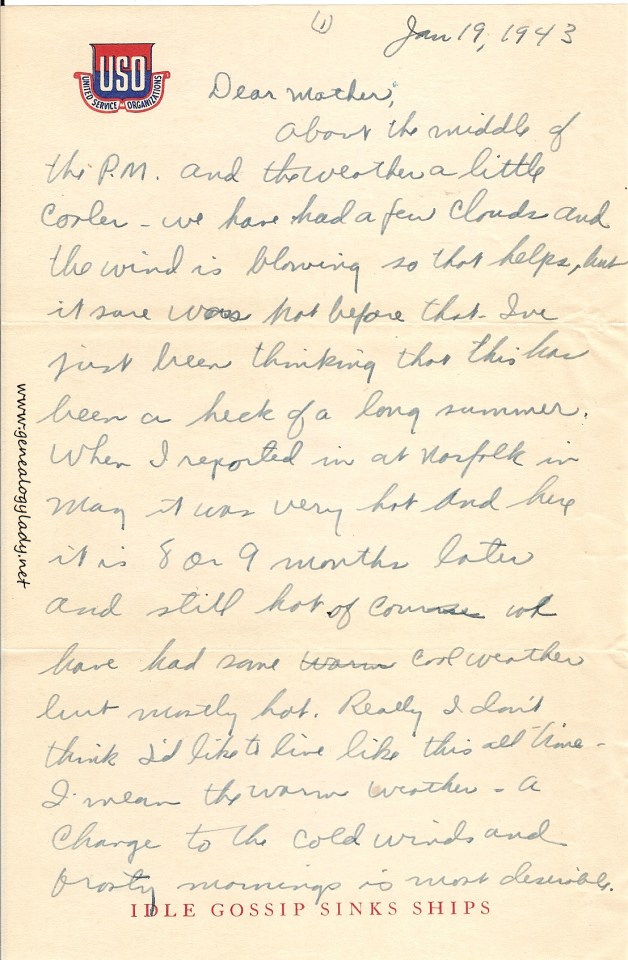 (1)
Jan 19, 1943
USO
UNITED SERVICE ORGANIZATIONS
Dear Mother,
About the middle of
the P.M. and the weather a little
cooler - we have had a few clouds and
the wind is blowing so that helps, but
it sure was hot before that - I've
just been thinking that this has
been a heck of a long summer.
When I reported in at Norfolk in
May it was very hot and here
it is 8 or 9 months later
and still hot, of course we
have had some warm cool weather
but mostly hot. Really I don't
think I'd like to live like this all time -
I mean the warm weather - a
change to the cold winds and
frosty mornings is most desirable.
IDLE GOSSIP SINKS SHIPS
www.genealogylady.net